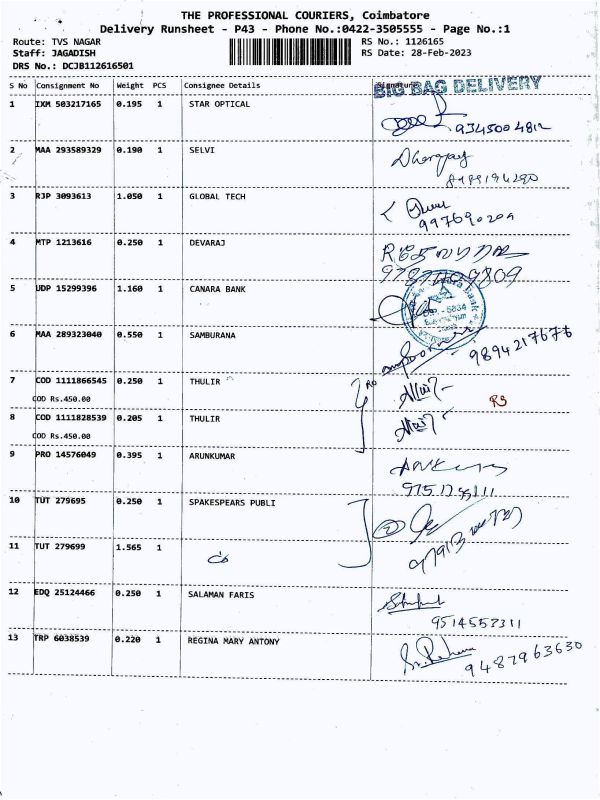 THE PROFESSIONAL COURIERS, Coimbatore
Delivery Runsheet - P43 - Phone No.:0422-3505555 - Page No.:1
Route: TVS NAGAR RS No.: 1126165
Staff: JAGADISH RS Date: 28-Feb-2023
DRS No.: DCJB112616501
BIG BAG DELIVERY
S No Consignment No Weight PCS Consignee Details Signature
1 IXM 503217165 0.195 1 STAR OPTICAL
2 MAA 293589329 0.190 1 SELVI
3 RJP 3093613 1.050 1 GLOBAL TECH
4 MTP 1213616 0.250 1 DEVARAJ
5 UDP 15299396 1.160 1 CANARA BANK
6 MAA 289323040 0.550 1 SAMBURANA
9894217676
7 COD 1111866545 0.250 1 THULIR
COD Rs.450.00
RS
8 COD 1111828539 0.205 1 THULIR
COD Rs.450.00
9 PRO 14576049 0.395 1 ARUNKUMAR
10 TUT 279695 0.250 1 SPAKESPEARS PUBLI
11 TUT 279699 1.565 1
12 EDQ 25124466 0.250 1 SALAMAN FARIS
9514557311
13 TRP 6038539 0.220 1 REGINA MARY ANTONY
9487963630